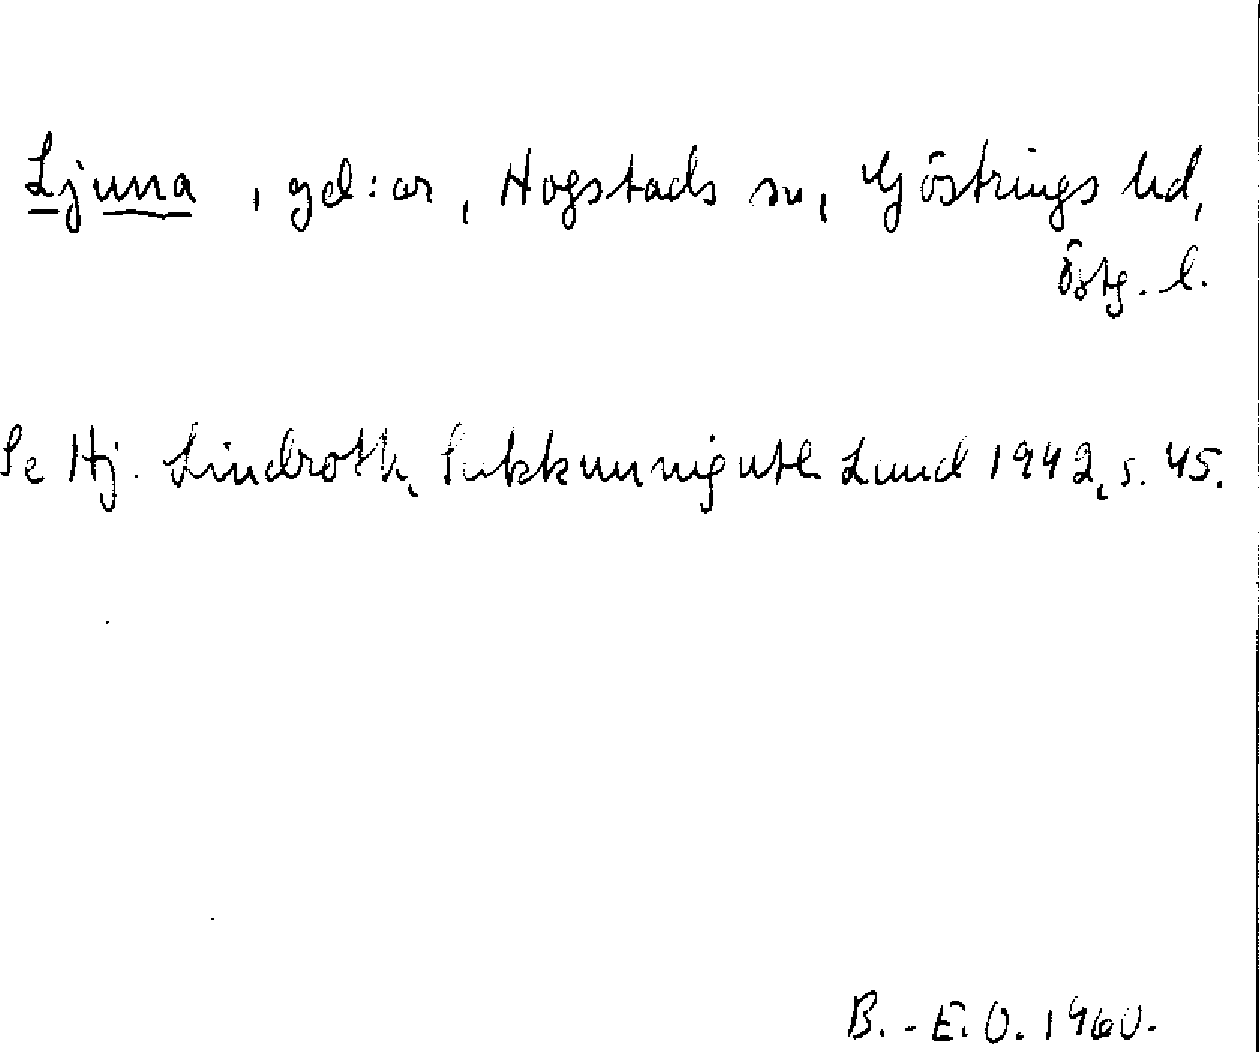 Ljuna, gd:ar, Hogstads sn, Göstrings hd,
Östg. l.
Se Hj. Lindroth, Lund 1942, s. 45.
B.-E. O. 1960.